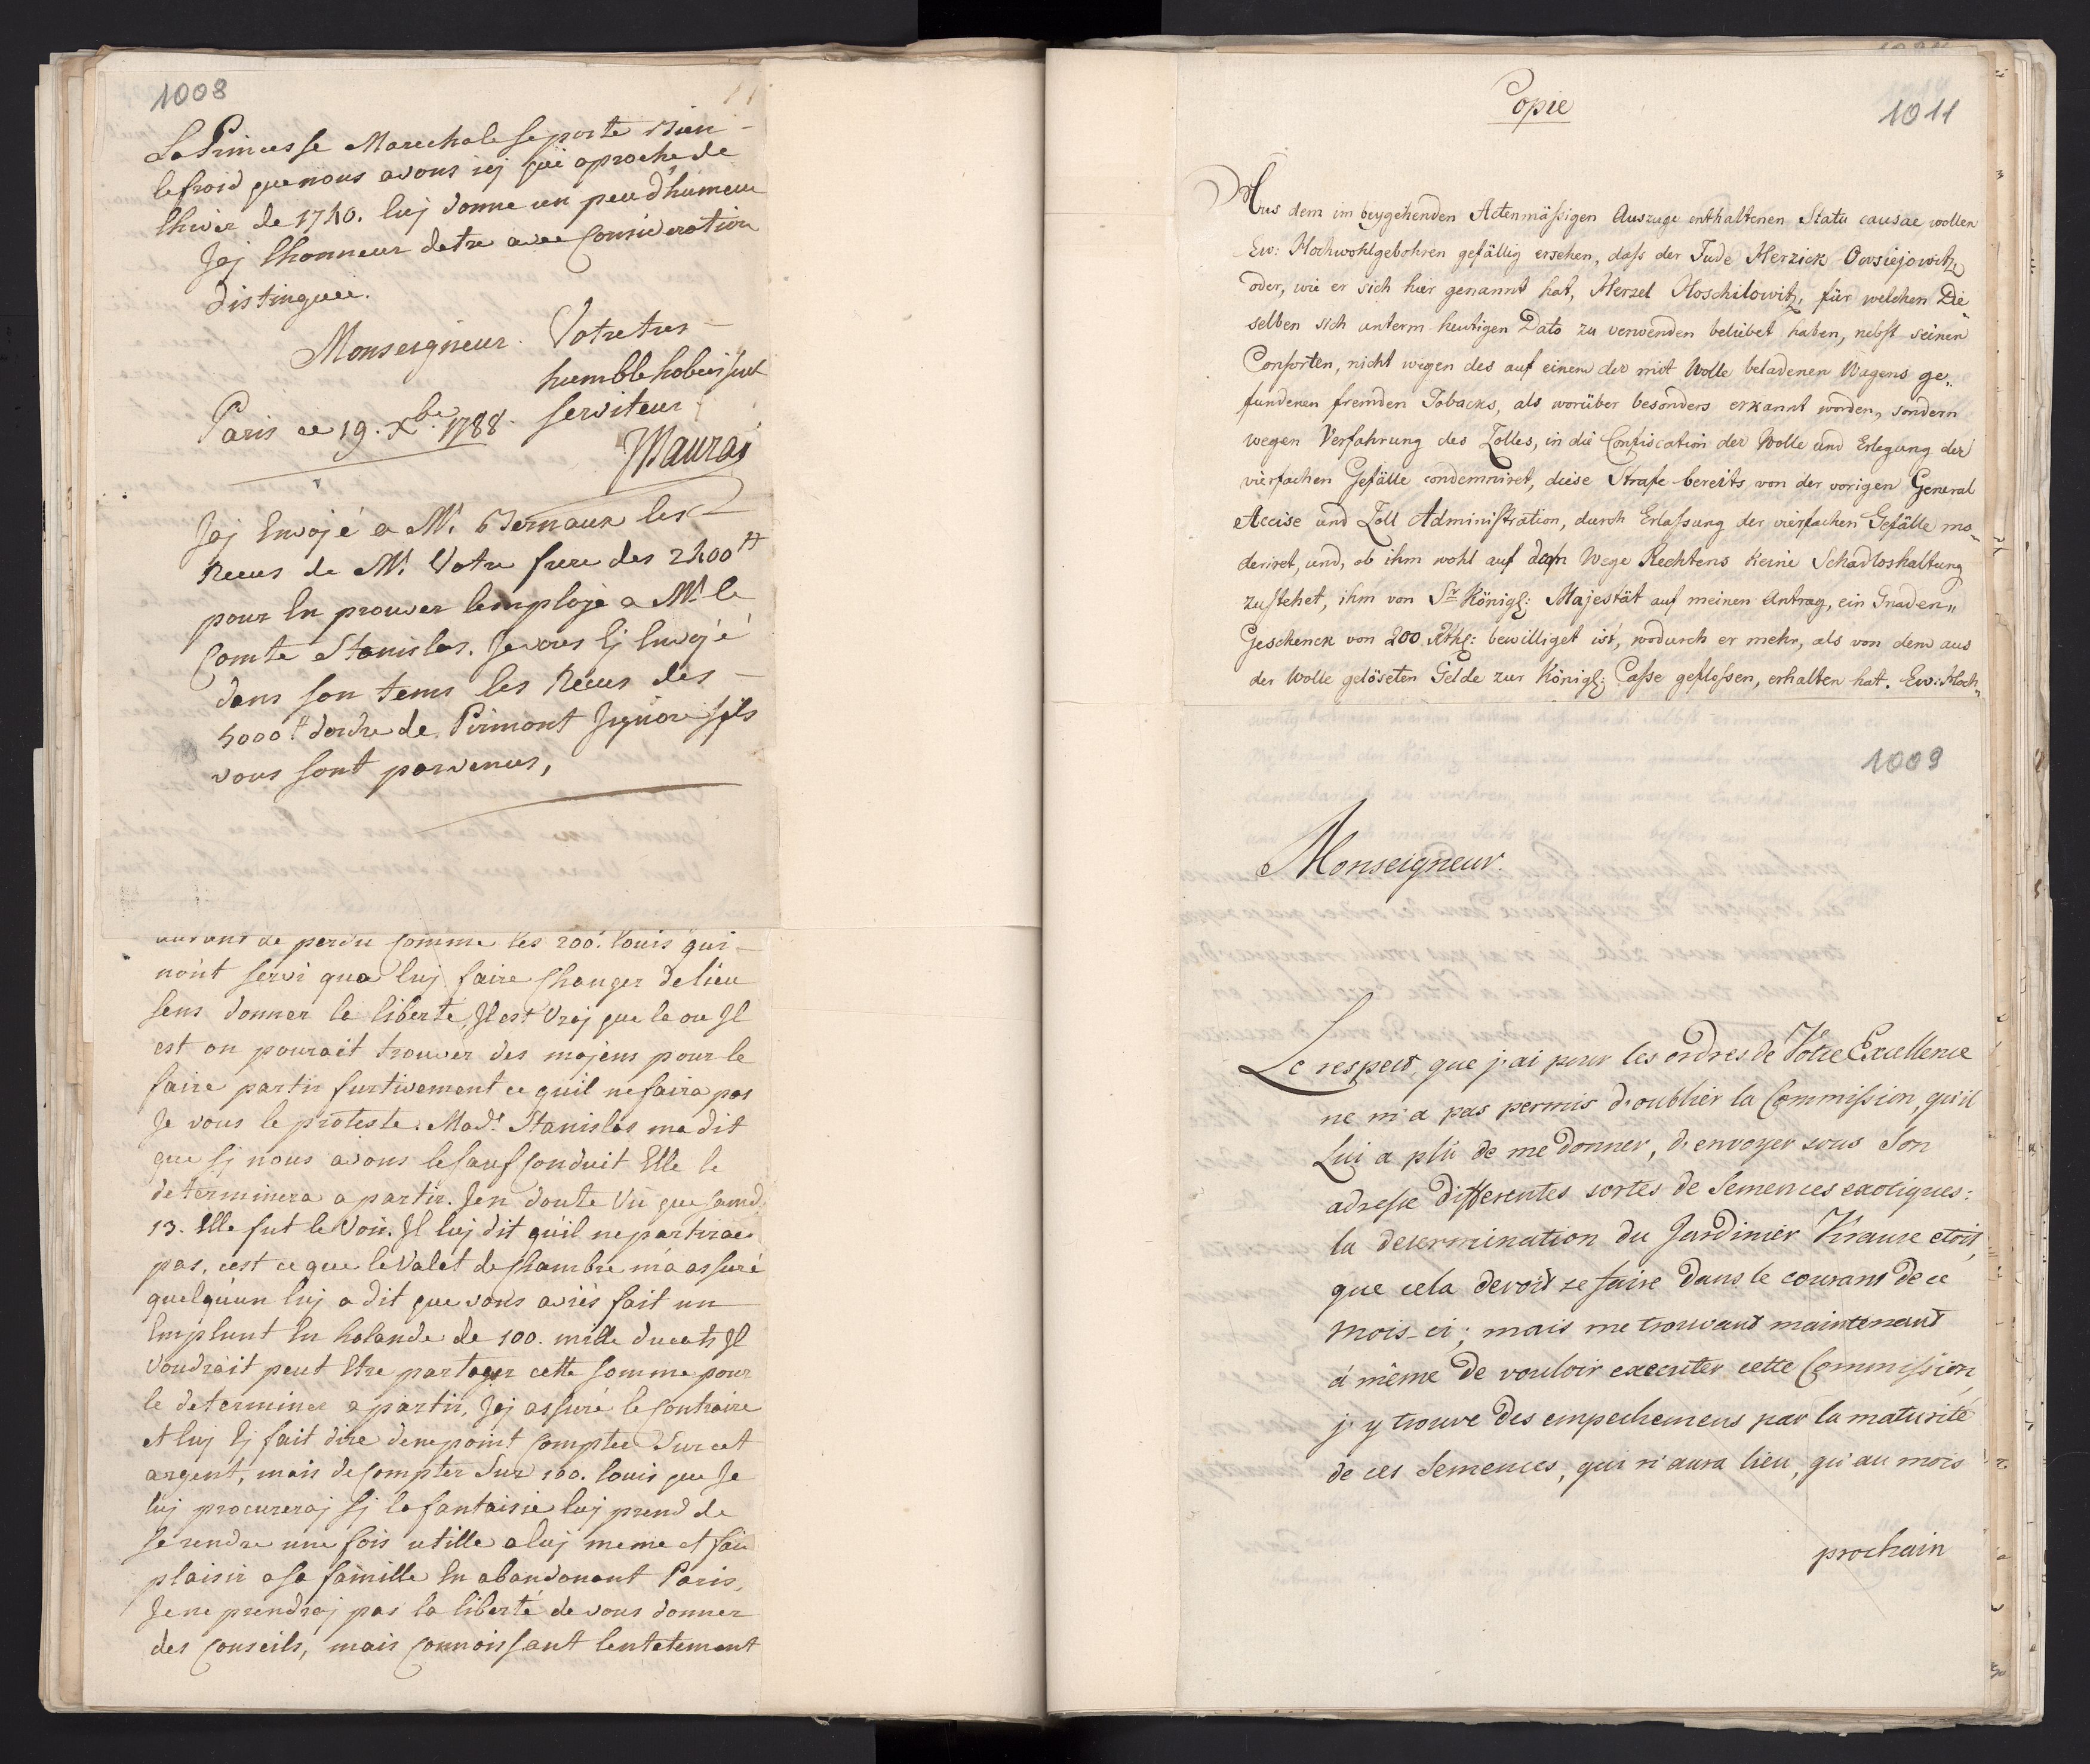 1008
La Princesse Marechale se porte Bien –
le froid que nous avons icj qui aproche de
lhiver de 1740. luj donne un peu d'humeur
Jaj lhonneur detre avec Consideration
distinguee.
Monseigneur. Votre tres –
humble hobeissent
serviteur
Paris ce 19. Xbe. 1788.
Maurai
Jaj Envojé a Mr. Bernaux les
Recus de Mr. Votre frere des 2400 tt
pour En prouver lemploje a Mr. le
Comte Stanislas. Je vous Ej Envojé
dans son tems les Recus des –
5000 tt dordre de Pirmont Jignore sils
vous sont parvenus,
autant de perdu Comme les 200. louis qui –
nont servi qua luj faire Changer de lieu
sens donner la liberté, Il est Vraj que la ou Il
est on pourait trouver des mojens pour le
faire partir furtivement ce quil ne faira pas
Je vous le proteste. Made. Stanislas ma dit
que sj nous avons le sauf Conduit Elle le
determinera a partir. Jen doute Vu que samd.
13. Elle fut le Voir. Il luj dit qu'il ne partirae
pas, cest ce que le Valet de Chambre m'a assuré
quelqu'un luj a dit que vous aviés fait un
Emplunt En holande de 100. mille ducats Il
Voudrait peut Etre partager cette somme pour
le determiner a partir, Jaj assuré le Contraire
et luj Ej fait dire de ne point Compter Sur cet
argent, mais de Compter Sur 100. louis que Je
luj procureraj sj la fantaisie luj prend de
se rendre une fois utille a luj meme et fair
plaisir a sa famille En abandonant Paris,
Je ne prendraj pas la liberté de vous donner
des Conseils, mais Connoissant lentetement
Copie
1011
Aus dem im beygehenden Actenmäßigen Auszuge enthaltenen Statu causae wollen
Ew: Hochwohlgebohren gefällig ersehen, daß der Jude Herzick Owsiejowitz,
oder, wie er sich hier genannt hat, Herzel Hoschilowitz, für welchen Die
selben sich unterm heutigen Dato zu verwenden beliebet haben, nebst seinen
Consorten, nicht wegen des auf einem der mit Wolle beladenen Wagens ge„
fundenen fremden Tobacks, als worüber besonders erkannt worden, sondern
wegen Verfahrung des Zolles, in die Confiscation der Wolle und Erlegung der
vierfachen Gefälle condemniret, diese Strafe bereits von der vorigen General
Accise und Zoll Administration, durch Erlaßung der vierfachen Gefälle mo
deriret, und, ob ihm wohl auf dem Wege Rechtens keine Schadloshaltung
zustehet, ihm von Sr. Königl: Majestät auf meinen Antrag, ein Gnaden„
Geschenck von 200 Rthl: bewilliget ist, wodurch er mehr, als von dem aus
der Wolle gelöseten Gelde zur Königl: Caße gefloßen, erhalten hat. Ew: Hoch„
1009
Monseigneur.
Le respect, que j'ai pour les ordres de Votre Excellence
ne m'a pas permis d'oublier la Commission, qu'il
Lui a plû de me donner, d'envoyer sous Son
adresse differentes sortes de Semences exotiques:
la determination du Jardinier Krause etoit,
que cela devoit se faire dans le courant de ce
mois-ci; mais me trouvant maintenant
à même de vouloir executer cette Commission,
j'y trouve des empechemens par la maturité
de ces Semences, qui n'aura lieu, qu'au mois
prochain